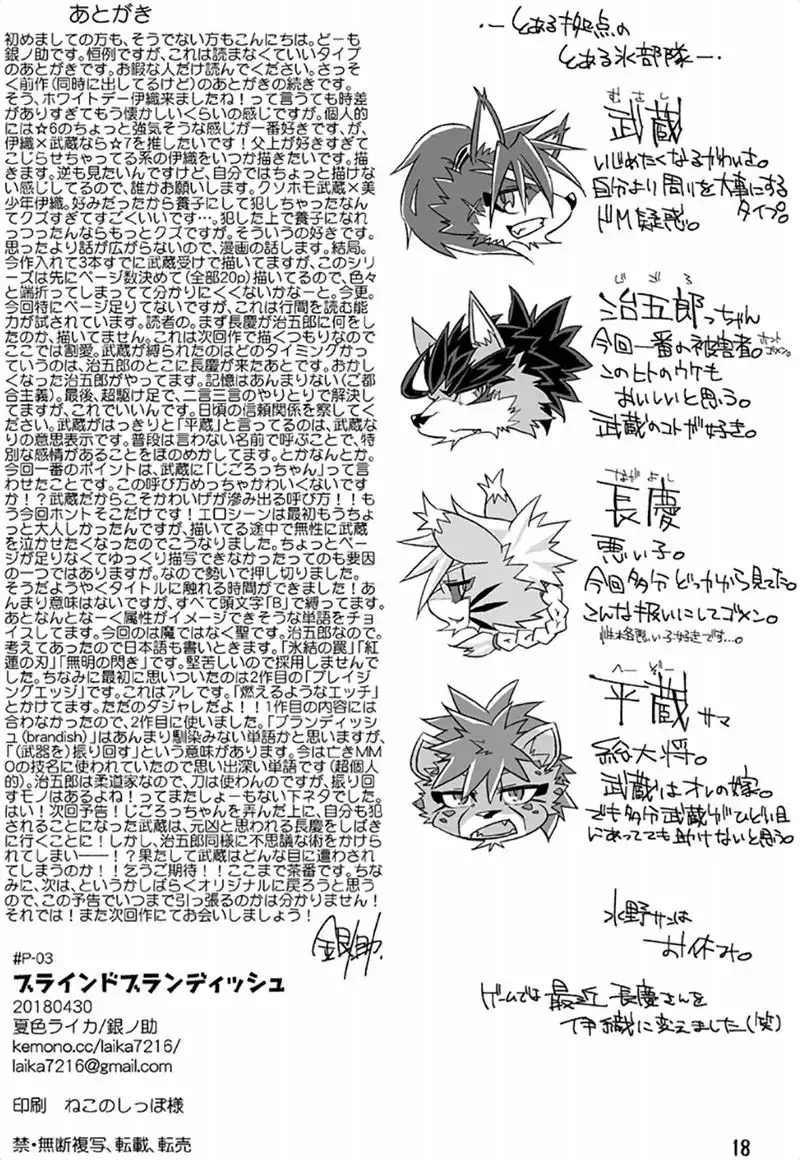 あとがき
初めましての方も、そうでない方もこんにちは。どーも
銀ノ助です。恒例ですが、これは読まなくていいタイプ
のあとがきです。お暇な人だけ読んでください。さっそ
く前作(同時に出してるけど)のあとがきの続きです。
そう、ホワイトデー伊織来ましたね!って言うても時差
がありすぎてもう懐かしいくらいの感じですが。個人的
には☆6のちょっと強気そうな感じが一番好きですが、
伊織×武蔵なら☆7を推したいです!父上が好きすぎて
こじらせちゃってる系の伊織をいつか描きたいです。描
きます。逆も見たいんですけど、自分ではちょっと描けな
い感じしてるので、誰かお願いします。クソホモ武蔵×美
少年伊織。好みだったから養子にして犯しちゃったなん
てクズすぎてすごくいいです…。犯した上で養子になれ
っつったんならもっとクズですが。そういうの好きです。
思ったより話が広がらないので、漫画の話します。結局。
今作入れて3本すでに武蔵受けで描いてますが、このシリ
ーズは先にページ数決めて(全部20p)描いてるので、色々
と端折ってしまってて分かりにくくないかなーと。今更。
今回特にページ足りてないですが、これは行間を読む能
力が試されています。読者の。まず長慶が治五郎に何をし
たのか、描いてません。これは次回作で描くつもりなので
ここでは割愛。武蔵が縛られたのはどのタイミングかっ
ていうのは、治五郎のとこに長慶が来たあとです。おかし
くなった治五郎がやってます。記憶はあんまりない(ご都
合主義)。最後、超駆け足で、二言三言のやりとりで解決し
てますが、これでいいんです。日頃の信頼関係を察してく
ださい。武蔵がはっきりと「平蔵」と言ってるのは、武蔵な
りの意思表示です。普段は言わない名前で呼ぶことで、特
別な感情があることをほのめかしてます。とかなんとか。
今回一番のポイントは、武蔵に「じごろっちゃん」って言
わせたことです。この呼び方めっちゃかわいくないです
か!?武蔵だからこそかわいげが滲み出る呼び方!!も
う今回ホントそこだけです!エロシーンは最初もうちょ
っと大人しかったんですが、描いてる途中で無性に武蔵
を泣かせたくなったのでこうなりました。ちょっとペー
ジが足りなくてゆっくり描写できなかったってのも要因
の一つではありますが。なので勢いで押し切りました。
そうだようやくタイトルに触れる時間ができました!あ
んまり意味はないですが、すべて頭文字「B」で縛ってます。
あとなんとなーく属性がイメージできそうな単語をチョ
イスしてます。今回のは魔ではなく聖です。治五郎なので。
考えてあったので日本語も書いときます。「氷結の罠」「紅
蓮の刃」「無明の閃き」です。堅苦しいので採用しませんで
した。ちなみに最初に思いついたのは2作目の「ブレイジ
ングエッジ」です。これはアレです。「燃えるようなエッチ」
とかけてます。ただのダジャレだよ!!1作目の内容には
合わなかったので、2作目に使いました。「ブランディッシ
ュ(brandish)」はあんまり馴染みない単語かと思いますが、
「(武器を)振り回す」という意味があります。今は亡きMM
Oの技名に使われていたので思い出深い単語です(超個人
的)。治五郎は柔道家なので、刀は使わんのですが、振り回
すモノはあるよね!ってまたしょーもない下ネタでした。
はい!次回予告!じごろっちゃんを弄んだ上に、自分も犯
されることになった武蔵は、元凶と思われる長慶をしばき
に行くことに!しかし、治五郎同様に不思議な術をかけら
れてしまい――!?果たして武蔵はどんな目に遭わされ
てしまうのか!!乞うご期待!!ここまで茶番です。ちな
みに、次は、というかしばらくオリジナルに戻ろうと思う
ので、この予告でいつまで引っ張るのかは分かりません!
それでは!また次回作にてお会いしましょう!
銀ノ助.
#P-03
ブラインドブランディッシュ
20180430
夏色ライカ/銀ノ助
kemono.cc/laika7216/
laika7216@gmail.com
印刷 ねこのしっぽ様
禁・無断複写、転載、転売
・―とある拠点の
とある氷部隊―・
むさし
武蔵
いじめたくなるかわいさ。
自分より周りを大事にする
タイプ。
ドM疑惑。
じごろ
治五郎っちゃん
今回一番の被害者。ホントゴメン。
このヒトのウケも
おいしいと思う。
武蔵のコトが好き。
ながよし
長慶
悪い子。
今回多分どっかから見てた。
こんな扱いにしてゴメン。
性格悪い子好きです…。
へーぞー
平蔵サマ
総大将。
武蔵はオレの嫁。
でも多分武蔵がひどい目
にあってても助けないと思う。
水野サンは
お休み。
ゲームでは最近長慶さんを
伊織に変えました(笑)
18